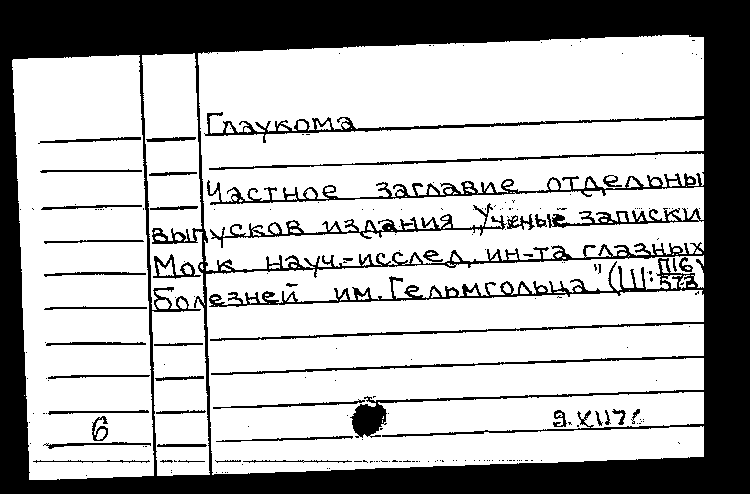 Глаукома
Частное заглавие отдельны
выпусков издания „Ученые записки
Моск. науч.-исслед. ин-та глазных
болезней им. Гельмгольца." (Ш: П16
573)
6